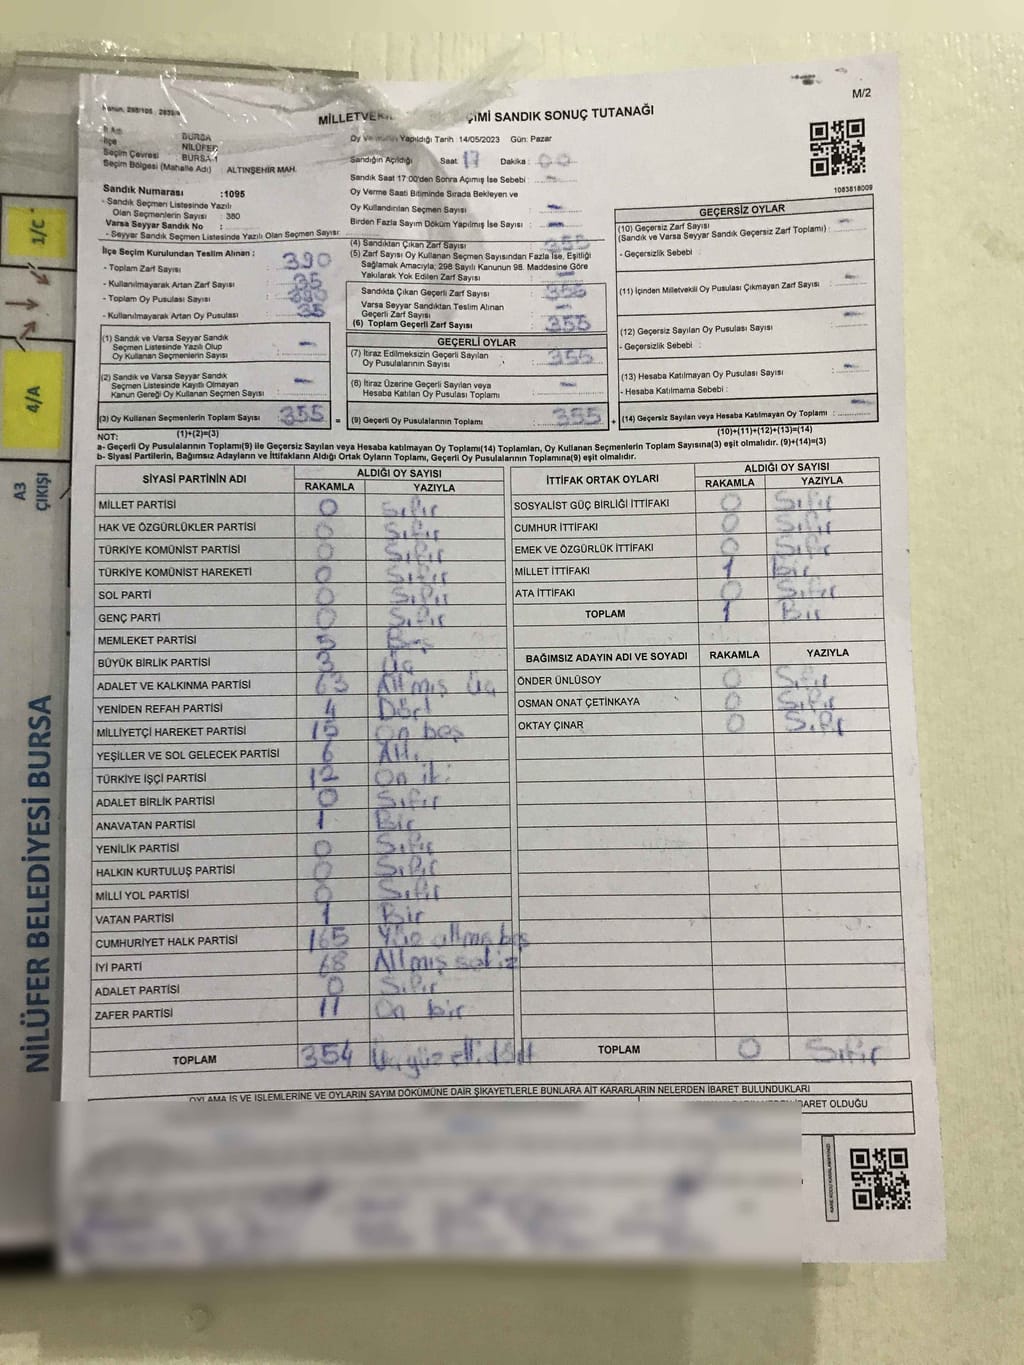 M/2
Kanun, 298/105
MİLLETVEK
ÇİMİ SANDIK SONUÇ TUTANAĞI
İlçe
Seçim Çevresi
Seçim Bölgesi (Mahalle Adı)
: BURSA
: NİLÜFER
: BURSA-1
: ALTINŞEHİR MAH.
Sandık Numarası :1095
- Sandık Seçmen Listesinde Yazılı
Olan Seçmenlerin Sayısı : 380
Varsa Seyyar Sandık No :
- Seyyar Sandık Seçmen Listesinde Yazılı Olan Seçmen Sayısı:
İlçe Seçim Kurulundan Teslim Alınan :
- Toplam Zarf Sayısı : 390
- Kullanılmayarak Artan Zarf Sayısı : 35
- Toplam Oy Pusulası Sayısı : 390
- Kullanılmayarak Artan Oy Pusulası : 35
(1) Sandık ve Varsa Seyyar Sandık
Seçmen Listesinde Yazılı Olup
Oy Kullanan Seçmenlerin Sayısı : -
(2) Sandık ve Varsa Seyyar Sandık
Seçmen Listesinde Kayıtlı Olmayan
Kanun Gereği Oy Kullanan Seçmen Sayısı : -
(3) Oy Kullanan Seçmenlerin Toplam Sayısı : 355
(1)+(2)=(3)
Oy Yapıldığı Tarih : 14/05/2023 Gün: Pazar
Sandığın Açıldığı Saat : 17 Dakika : 00
Sandık Saat 17:00'den Sonra Açımış İse Sebebi : -
Oy Verme Saati Bitiminde Sırada Bekleyen ve
Oy Kullandırılan Seçmen Sayısı : -
Birden Fazla Sayım Döküm Yapılmış İse Sayısı : -
(4) Sandıktan Çıkan Zarf Sayısı : 355
(5) Zarf Sayısı Oy Kullanan Seçmen Sayısından Fazla İse, Eşitliği
Sağlamak Amacıyla, 298 Sayılı Kanunun 98. Maddesine Göre
Yakılarak Yok Edilen Zarf Sayısı : -
Sandıkta Çıkan Geçerli Zarf Sayısı : 355
Varsa Seyyar Sandıktan Teslim Alınan
Geçerli Zarf Sayısı : -
(6) Toplam Geçerli Zarf Sayısı : 355
GEÇERLİ OYLAR
(7) İtiraz Edilmeksizin Geçerli Sayılan
Oy Pusulalarının Sayısı : 355
(8) İtiraz Üzerine Geçerli Sayılan veya
Hesaba Katılan Oy Pusulası Toplamı : -
= (9) Geçerli Oy Pusulalarının Toplamı : 355
1083818009
GEÇERSİZ OYLAR
(10) Geçersiz Zarf Sayısı
(Sandık ve Varsa Seyyar Sandık Geçersiz Zarf Toplamı) : -
- Geçersizlik Sebebi :
(11) İçinden Milletvekili Oy Pusulası Çıkmayan Zarf Sayısı : -
(12) Geçersiz Sayılan Oy Pusulası Sayısı : -
- Geçersizlik Sebebi :
(13) Hesaba Katılmayan Oy Pusulası Sayısı : -
- Hesaba Katılmama Sebebi :
+ (14) Geçersiz Sayılan veya Hesaba Katılmayan Oy Toplamı : -
(10)+(11)+(12)+(13)=(14)
NOT:
a- Geçerli Oy Pusulalarının Toplamı(9) ile Geçersiz Sayılan veya Hesaba katılmayan Oy Toplamı(14) Toplamları, Oy Kullanan Seçmenlerin Toplam Sayısına(3) eşit olmalıdır. (9)+(14)=(3)
b- Siyasi Partilerin, Bağımsız Adayların ve İttifakların Aldığı Ortak Oyların Toplamı, Geçerli Oy Pusulalarının Toplamına(9) eşit olmalıdır.
SİYASİ PARTİNİN ADI
ALDIĞI OY SAYISI
RAKAMLA YAZIYLA
MİLLET PARTİSİ 0 Sıfır
HAK VE ÖZGÜRLÜKLER PARTİSİ 0 Sıfır
TÜRKİYE KOMÜNİST PARTİSİ 0 Sıfır
TÜRKİYE KOMÜNİST HAREKETİ 0 Sıfır
SOL PARTİ 0 Sıfır
GENÇ PARTİ 0 Sıfır
MEMLEKET PARTİSİ 5 Beş
BÜYÜK BİRLİK PARTİSİ 3 Üç
ADALET VE KALKINMA PARTİSİ 63 Altmış üç
YENİDEN REFAH PARTİSİ 4 Dört
MİLLİYETÇİ HAREKET PARTİSİ 15 On beş
YEŞİLLER VE SOL GELECEK PARTİSİ 6 Altı
TÜRKİYE İŞÇİ PARTİSİ 12 On iki
ADALET BİRLİK PARTİSİ 0 Sıfır
ANAVATAN PARTİSİ 1 Bir
YENİLİK PARTİSİ 0 Sıfır
HALKIN KURTULUŞ PARTİSİ 0 Sıfır
MİLLİ YOL PARTİSİ 0 Sıfır
VATAN PARTİSİ 1 Bir
CUMHURİYET HALK PARTİSİ 165 Yüz altmış beş
İYİ PARTİ 68 Altmış sekiz
ADALET PARTİSİ 0 Sıfır
ZAFER PARTİSİ 11 On bir
TOPLAM 354 Üçyüz elli dört
İTTİFAK ORTAK OYLARI
ALDIĞI OY SAYISI
RAKAMLA YAZIYLA
SOSYALİST GÜÇ BİRLİĞİ İTTİFAKI 0 Sıfır
CUMHUR İTTİFAKI 0 Sıfır
EMEK VE ÖZGÜRLÜK İTTİFAKI 0 Sıfır
MİLLET İTTİFAKI 1 bir
ATA İTTİFAKI 0 Sıfır
TOPLAM 1 Bir
BAĞIMSIZ ADAYIN ADI VE SOYADI RAKAMLA YAZIYLA
ÖNDER ÜNLÜSOY 0 Sıfır
OSMAN ONAT ÇETİNKAYA 0 Sıfır
OKTAY ÇINAR 0 Sıfır
TOPLAM 0 Sıfır
OYLAMA İŞ VE İŞLEMLERİNE VE OYLARIN SAYIM DÖKÜMÜNE DAİR ŞİKAYETLERLE BUNLARA AİT KARARLARIN NELERDEN İBARET BULUNDUKLARI
İBARET OLDUĞU
1/C
4/A
A3
ÇIKIŞI
NİLÜFER BELEDİYESİ BURSA